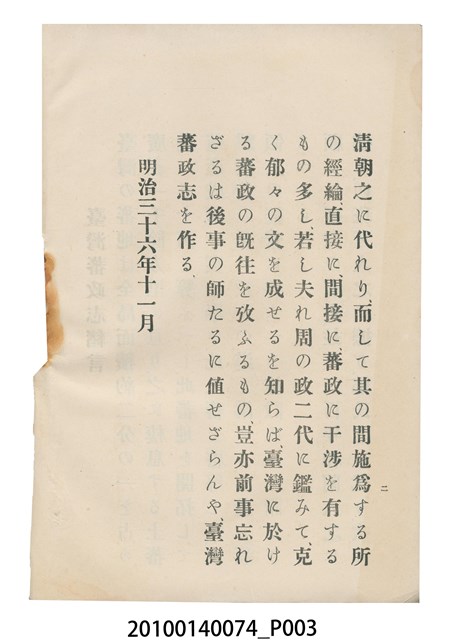 清朝之に代れり、而して其の間施爲する所
の經綸、直接に、間接に、蕃政に干涉を有する
もの多し、若し夫れ周の政二代に鑑みて、克
く郁々の文を成せるを知らば、臺灣に於け
る蕃政の旣往を攷ふるもの、豈亦前事忘れ
ざるは後事の師たるに値せざらんや、臺灣
蕃政志を作る、
明治三十六年十一月
二
20100140074_P003